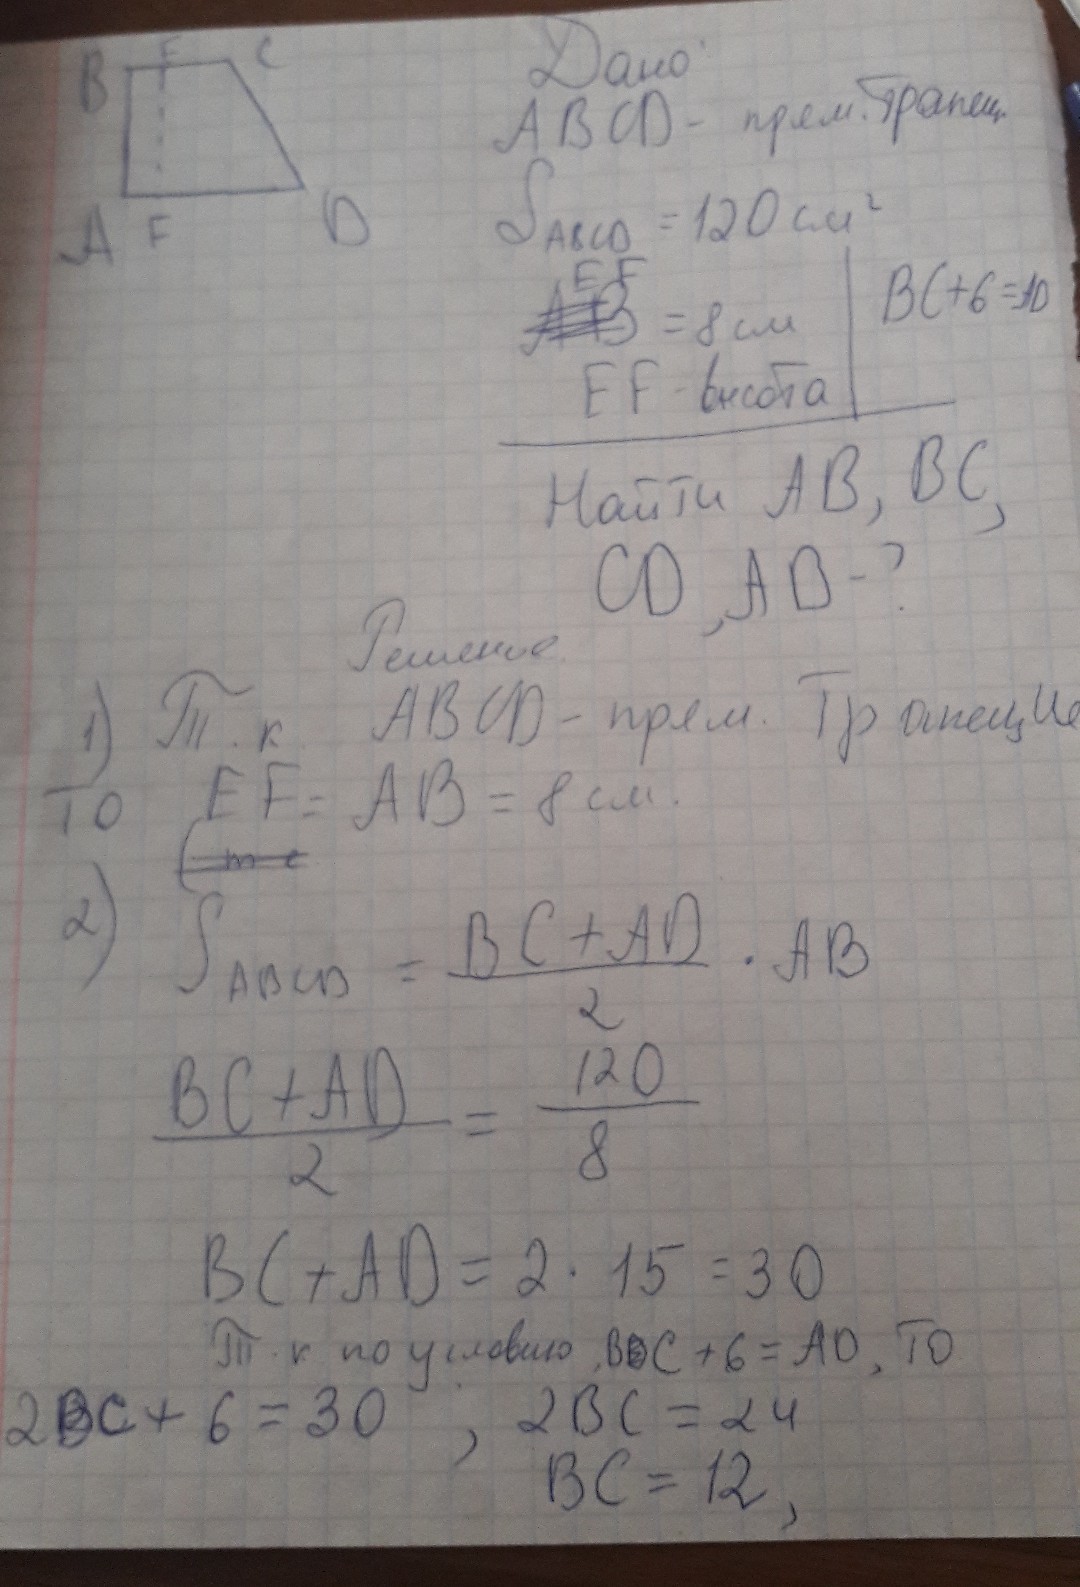 B F C
A F D
Дано:
ABCD - прям. Трапец.
S ABCD = 120 см²
EF
= 8 см
BC+6=AD
EF - высота
Найти AB, BC,
CD, AD - ?
Решение.
1) Т.к. ABCD - прям. Трапеция
то EF = AB = 8 см.
2) S ABCD = BC+AD/2 · AB
BC+AD/2 = 120/8
BC+AD = 2 · 15 = 30
Т.к по условию, BC+6=AD, то
2BC+6=30, 2BC=24
BC=12,